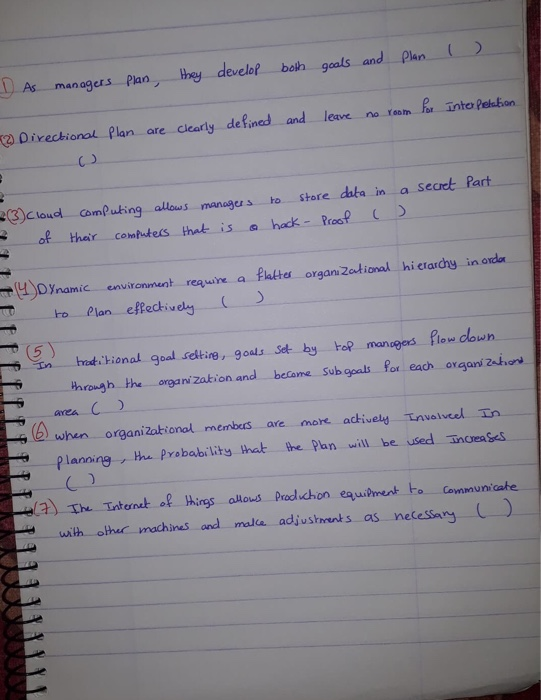 (1) As managers Plan, they develop both goals and Plan ( )
(2) Directional Plan are clearly defined and leave no room for interpetation
( )
(3) Cloud computing allows managers to store data in a secret Part
of their computers that is a hack-Proof ( )
(4) DYnamic environment require a flatter organizational hierarchy in order
to Plan effectively ( )
(5)
In traditional goal setting, goals set by top managers flow down
through the organization and become subgoals for each organizational
area ( )
(6) when organizational members are more actively Involved In
planning, the Probability that the Plan will be used Increases
( )
(7) The Internet of things allows Production equipment to communicate
with other machines and make adjustments as necessary ( )